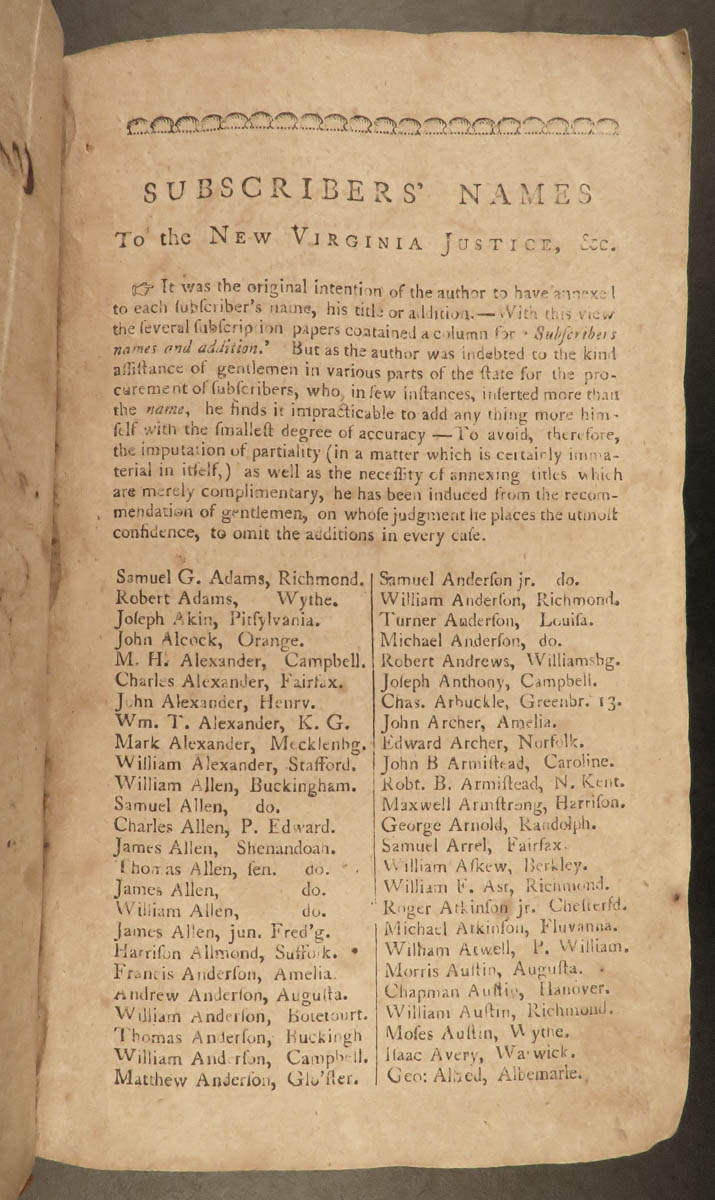 SUBSCRIBERS' NAMES
To the NEW VIRGINIA JUSTICE, &c.
☞ It was the original intention of the author to have annexed
to each ſubſcriber's name, his title or addition.—With this view
the ſeveral ſubſcription papers coatained a column for ' Subſcribers
names and addition.' But as the author was indebted to the kind
aſſiſtance of gentlemen in various parts of the ſtate for the pro-
curement of ſubſcribers, who, in few inſtances, inſerted more than
the name, he finds it impracticable to add any thing more him-
ſelf with the ſmalleſt degree of accuracy —To avoid, therefore,
the imputation of partiality (in a matter which is certainly imma-
terial in itſelf,) as well as the neceſſity of annexing titles which
are merely complimentary, he has been induced from the recom-
mendation of gentlemen, on whoſe judgment he places the utmoſt
confidence, to omit the additions in every caſe.
Samuel G. Adams, Richmond.
Robert Adams, Wythe.
Joſeph Akin, Pitſylvania.
John Alcock, Orange.
M. H. Alexander, Campbell.
Charles Alexander, Fairfax.
John Alexander, Henry.
Wm. T. Alexander, K. G.
Mark Alexander, Mecklenbg.
William Alexander, Stafford.
William Allen, Buckingham.
Samuel Allen, do.
Charles Allen, P. Edward.
James Allen, Shenandoah.
Thomas Allen, ſen. do.
James Allen, do.
William Allen, do.
James Allen, jun. Fred'g.
Harriſon Allmond, Suffolk.
Francis Anderſon, Amelia.
Andrew Anderſon, Auguſta.
William Anderſon, Botetourt.
Thomas Anderſon, Buckingh
William Anderſon, Campbell.
Matthew Anderſon, Glo'ſter.
Samuel Anderſon jr. do.
William Anderſon, Richmond.
Turner Anderſon, Louiſa.
Michael Anderſon, do.
Robert Andrews, Williamsbg.
Joſeph Anthony, Campbell.
Chas. Arbuckle, Greenbr. 13.
John Archer, Amelia.
Edward Archer, Norfolk.
John B Armiſtead, Caroline.
Robt. B. Armiſtead, N. Kent.
Maxwell Armſtrong, Harriſon.
George Arnold, Randolph.
Samuel Arrel, Fairfax.
William Aſkew, Berkley.
William F. Aſt, Richmond.
Roger Atkinſon jr. Cheſterfd.
Michael Atkinſon, Fluvanna.
William Atwell, P. William.
Morris Auſtin, Auguſta.
Chapman Auſtin, Hanover.
William Auſtin, Richmond.
Moſes Auſtin, Wythe.
Iſaac Avery, Warwick.
Geo: Albemarle.